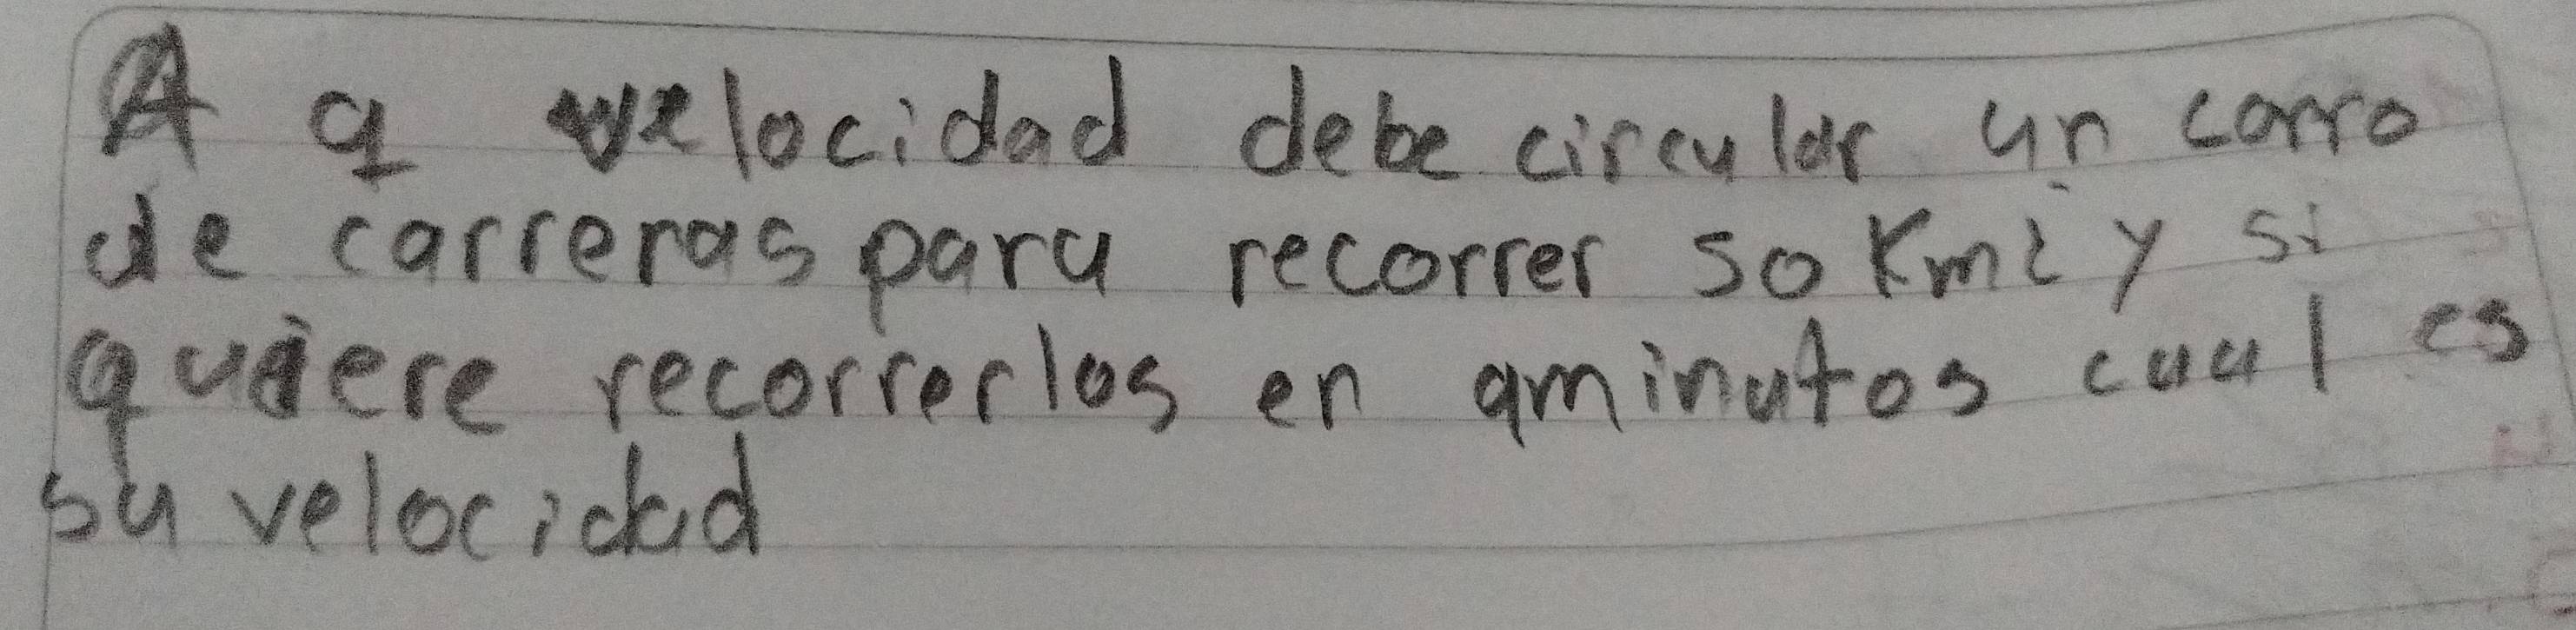 A q velocidad debe circular un carro
de carreras para recorrer 50 Km ¿ y si
quiere recorrerlos en 9minutos cual es
su velocidad